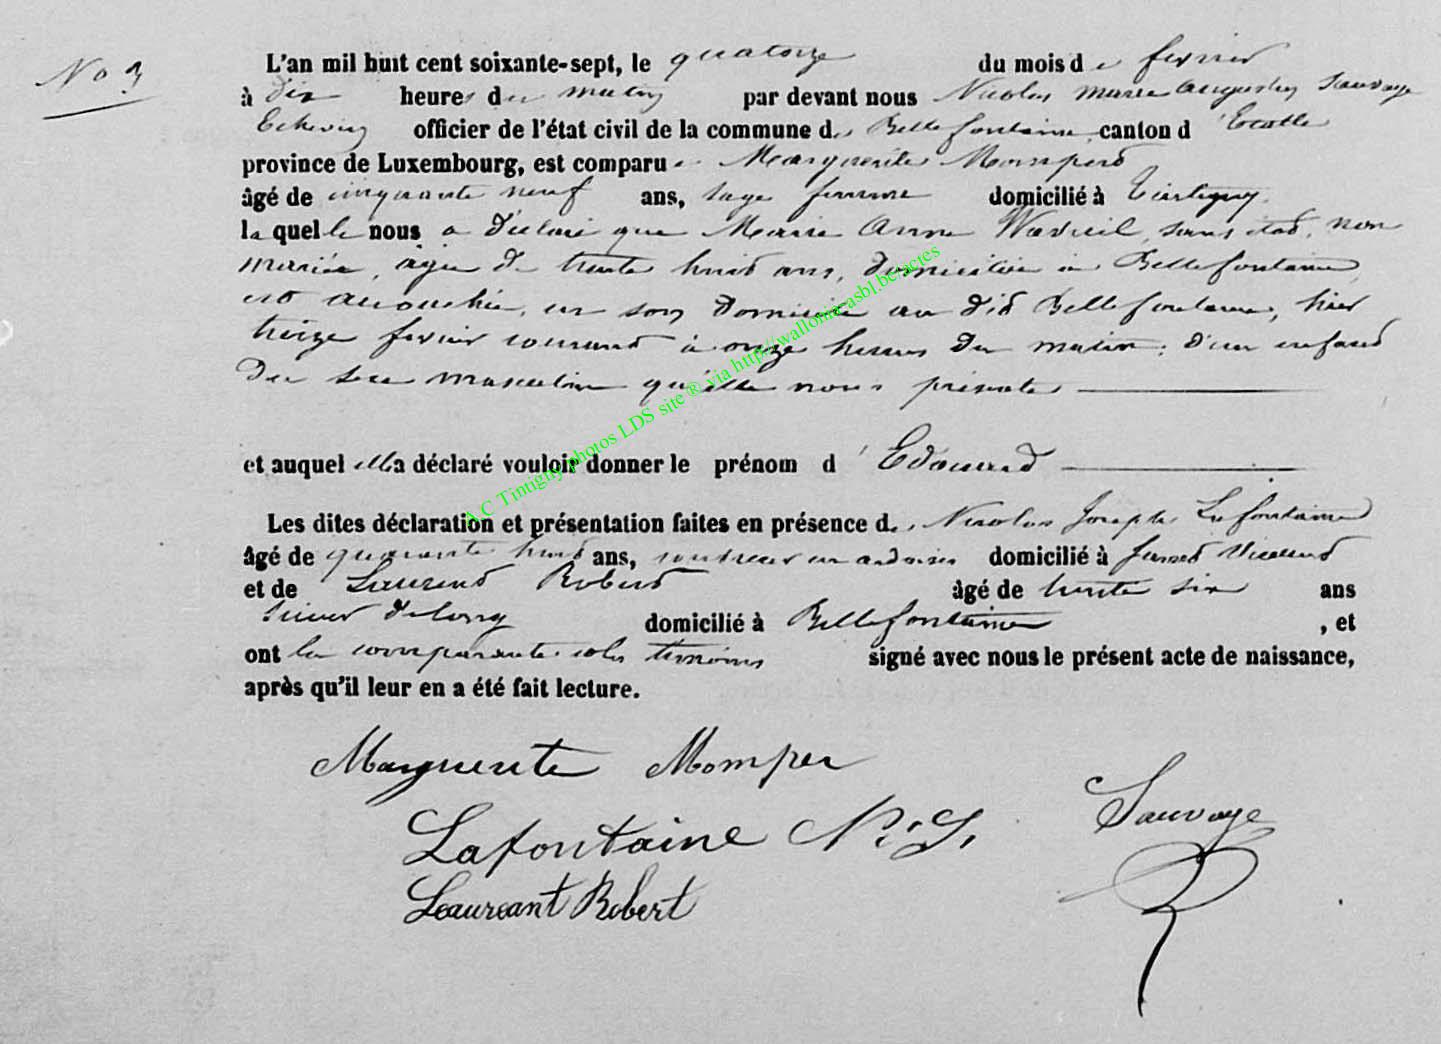 No 3
L'an mil huit cent soixante-sept, le quatorze du mois de fevrier
à dix heures du matin par devant nous Nicolas Marie Augustin Sauvage
Echevin officier de l'état civil de la commune de Bellefontaine canton d'Etalle
province de Luxembourg, est comparue Marguerite Momperd
âgé de cinquante neuf ans, sage femme domicilié à Tintigny
laquelle nous a déclaré que Marie Anne Waveuil, sans état, non
mariée, agée de trente huit ans, domiciliée à Bellefontaine,
est accouchée, en son domicile au dit Bellefontaine, hier
treize fevrier courant à onze heures du matin, d'un enfant
du sexe masculin qu'elle nous présente
et auquel elle a déclaré vouloir donner le prénom d'Edouard
Les dites déclaration et présentation faites en présence de Nicolas Joseph Lafontaine
âgé de quarante huit ans, couvreur en ardoises domicilié à
et de Laurent Robert âgé de trente six ans
scieur de long domicilié à Bellefontaine, et
ont la comparante et les témoins signé avec nous le présent acte de naissance,
après qu'il leur en a été fait lecture.
Marguerite Momper
Lafontaine N. J.
Sauvage
Leaureant Robert
A.C Tintigny photos LDS site ® via http://wallonia-asbl.be/actes